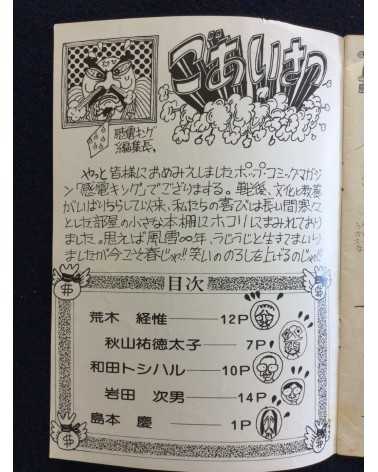 ごあいさつ
感電キング
編集長。
やっと皆様におめみえしましたポップコミックマガジ
ン「感電キング」でござりまする。戦後、文化と教養
がいばりちらして以来、私たちの喜びは長い間寒々
とした部屋の小さな本棚にホコリにまみれており
ました。思えば風雪∞年、うじうじと生きてまいり
ましたが今こそ春じゃ!!笑いののろしを上げるのじゃ!!
目次
荒木 経惟 12P
秋山祐徳太子 7P
和田トシハル 10P
岩田 次男 14P
島本 慶 1P